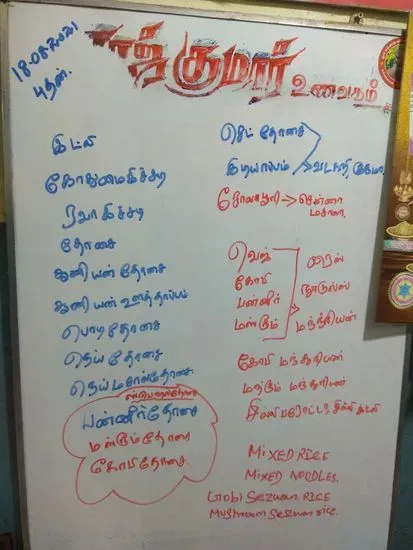 18-08-2021
புதன்.
ராஜ் குமார்
உணவகம்
இட்லி
கோதுமைகிச்சடி
ரவா கிச்சடி
தோசை
ஆனியன் தோசை
ஆனியன் ஊத்தாப்பம்
பொடிதோசை
நெய் தோசை
நெய் மசால்தோசை.
பன்னீர்தோசை
மஸ்ரூம்தோசை
கோபிதோசை.
செட் தோசை
இடியாப்பம் வடகறி, குருமா
சோலாபூரி → சென்னா
மசாலா.
வெஜ் ரைஸ்
கோபி
பன்னீர் நூடுல்ஸ்
மஸ்ரூம் மஞ்சூரியன்
கோபி மஞ்சூரியன்
மஸ்ரூம் மஞ்சூரியன்
சில்லி பரோட்டா, சில்லி இட்லி
MIXED RICE
MIXED NOODLES.
Gobi Sezwan RICE
Mushroom Sezwan rice.